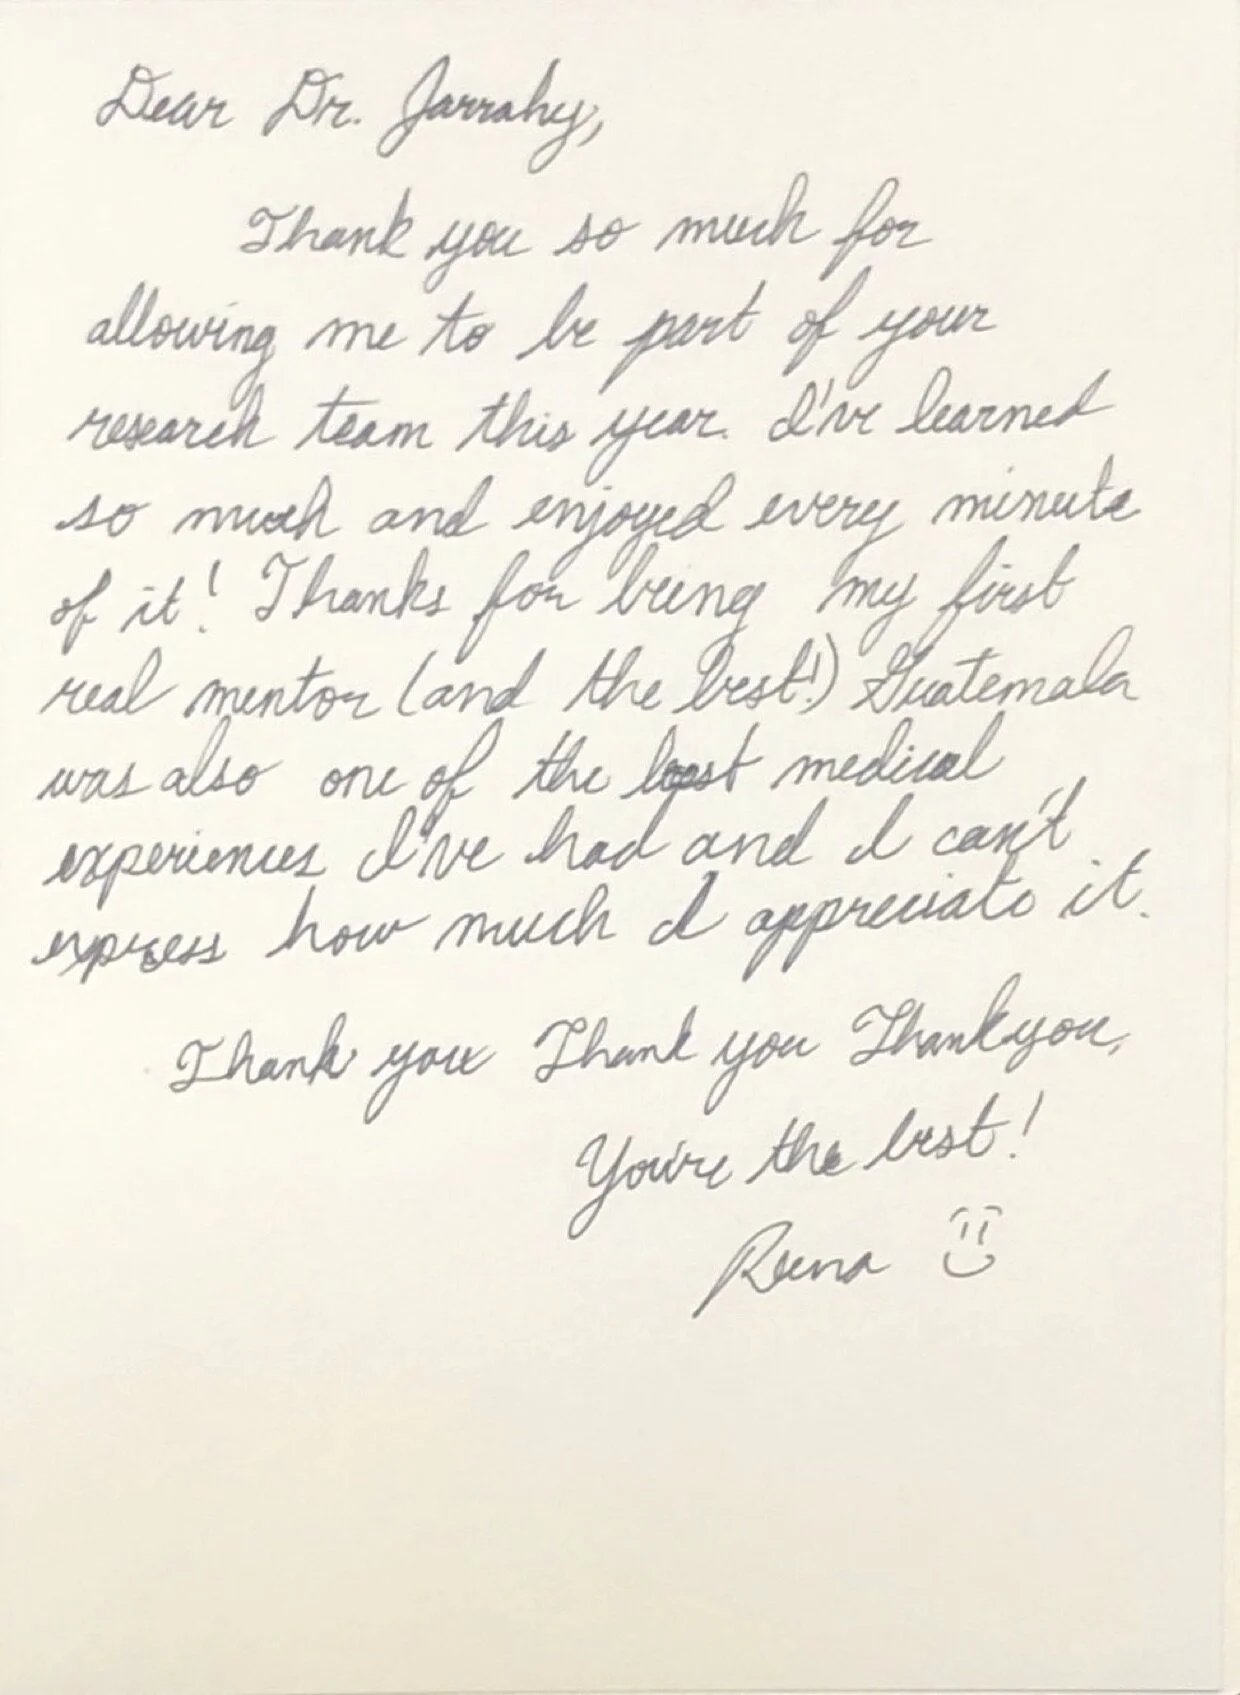 Dear Dr. Jarrahy,
Thank you so much for
allowing me to be part of your
research team this year. I've learned
so much and enjoyed every minute
of it! Thanks for being my first
real mentor (and the best!) Guatemala
was also one of the best medical
experiences I've had and I can't
express how much I appreciate it.
Thank you Thank you Thank you,
You're the best!